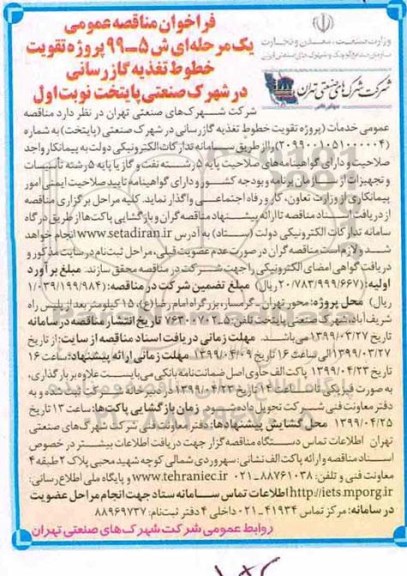 فراخوان مناقصه عمومی
یک مرحله‌ای ش ۵-۹۹ پروژه تقویت
خطوط تغذیه گازرسانی
در شهرک صنعتی پایتخت نوبت اول
وزارت صنعت، معدن و تجارت
شرکت شهرک‌های صنعتی تهران
شرکت شهرک‌های صنعتی تهران در نظر دارد مناقصه
عمومی خدمات (پروژه تقویت خطوط تغذیه گازرسانی در شهرک صنعتی (پایتخت) به شماره
(۲۰۹۹۰۰۱۰۵۱۰۰۰۰۰۴) را از طریق سامانه تدارکات الکترونیکی دولت به پیمانکار واجد
صلاحیت و دارای گواهینامه های صلاحیت پایه ۵ رشته نفت و گاز یا پایه ۵ رشته تأسیسات
و تجهیزات از سازمان برنامه و بودجه کشور و دارای گواهینامه تایید صلاحیت ایمنی امور
پیمانکاری از وزارت تعاون، کار و رفاه اجتماعی واگذار نماید. کلیه مراحل برگزاری مناقصه
از دریافت اسناد مناقصه تا ارائه پیشنهاد مناقصه گران و بازگشایی پاکت ها از طریق درگاه
سامانه تدارکات الکترونیکی دولت (ستاد) به آدرس www.setadiran.ir انجام خواهد
شد و لازم است مناقصه گران در صورت عدم عضویت قبلی، مراحل ثبت نام در سایت مذکور و
دریافت گواهی امضای الکترونیکی را جهت شرکت در مناقصه محقق سازند. مبلغ برآورد
اولیه: (۲۰/۷۸۳/۹۹۹/۶۶۷ ریال) مبلغ تضمین شرکت در مناقصه: (۱/۰۳۹/۱۹۹/۹۸۴
ریال) محل پروژه: محور تهران - گرمسار، بزرگراه امام رضا (ع)، ۱۵ کیلومتر بعد از پلیس راه
شریف آباد، شهرک صنعتی پایتخت تلفن: ۵-۷۶۳۰۷۰۲ تاریخ انتشار مناقصه در سامانه
تاریخ ۱۳۹۹/۰۳/۲۷ می‌باشد. مهلت زمانی دریافت اسناد مناقصه از سایت: از تاریخ
۱۳۹۹/۰۳/۲۷ الی ساعت ۱۶ تاریخ ۱۳۹۹/۰۴/۰۹ مهلت زمانی ارائه پیشنهاد: ساعت ۱۶
تاریخ ۱۳۹۹/۰۴/۲۳ پاکت الف حاوی اصل ضمانت‌نامه بانکی می‌بایست علاوه بر بارگذاری،
به صورت فیزیکی تا ساعت ۱۶ تاریخ ۱۳۹۹/۰۴/۲۳ در دبیرخانه شرکت ثبت شده و به
دفتر معاونت فنی شرکت تحویل داده شود. زمان بازگشایی پاکت‌ها: ساعت ۱۳ تاریخ
۱۳۹۹/۰۴/۲۵ محل گشایش پیشنهادها: دفتر معاونت فنی شرکت شهرک‌های صنعتی
تهران اطلاعات تماس دستگاه مناقصه گزار جهت دریافت اطلاعات بیشتر در خصوص
اسناد مناقصه و ارائه پاکت الف نشانی: سهروردی شمالی کوچه شهید محبی پلاک ۲ طبقه ۴
معاونت فنی و تلفن: ۸۸۷۶۱۰۳۸-۰۲۱ www.tehraniec.ir و پایگاه ملی اطلاع رسانی:
http://iets.mporg.ir اطلاعات تماس سامانه ستاد جهت انجام مراحل عضویت
در سامانه: مرکز تماس ۴۱۹۳۴-۰۲۱ داخلی ۴ دفتر ثبت نام: ۸۸۹۶۹۷۳۷
روابط عمومی شرکت شهرک های صنعتی تهران